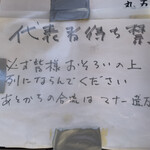 代表者待ち禁
必ず皆様おそろいの上
列にならんでください
あとからの合流はマナー違反